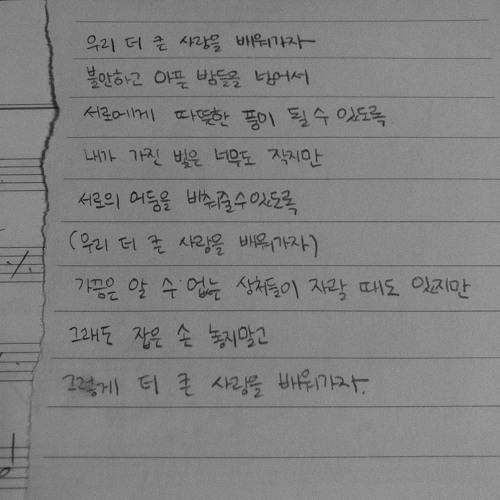 우리 더 큰 사랑을 배워가자
불안하고 아픈 밤들을 넘어서
서로에게 따뜻한 품이 될 수 있도록
내가 가진 빛은 너무도 작지만
서로의 어둠을 비춰줄 수 있도록
(우리 더 큰 사랑을 배워가자)
가끔은 알 수 없는 상처들이 자랄 때도 있지만
그래도 잡은 손 놓지말고
그렇게 더 큰 사랑을 배워가자.